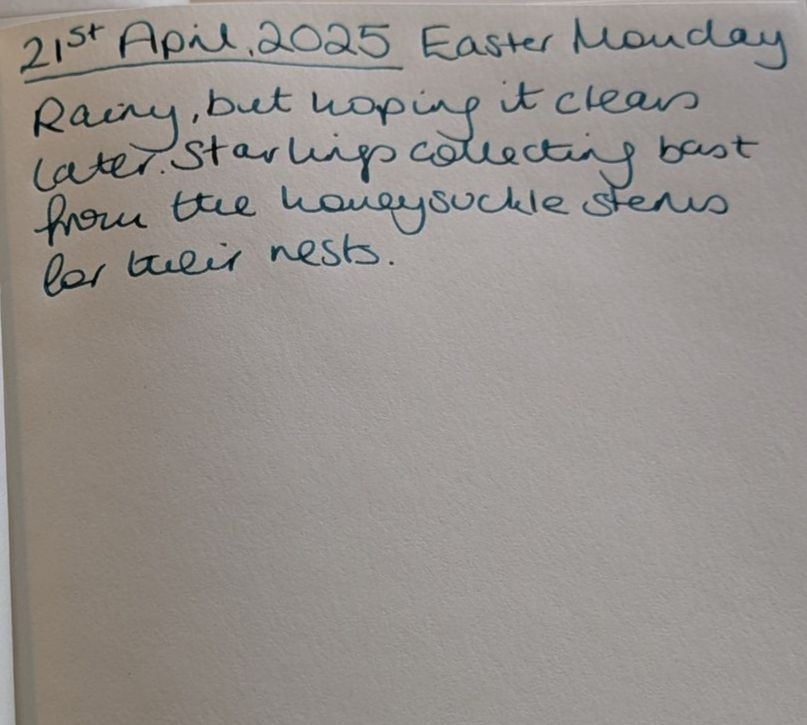 21st April, 2025 Easter Monday
Rainy, but hoping it clears
later. Starlings collecting bast
from the honeysuckle stems
for their nests.